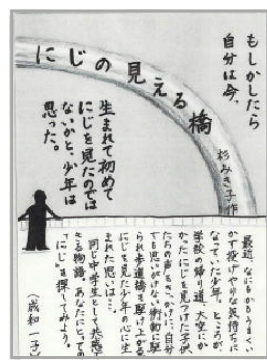 もしかしたら
自分は今、
にじの見える橋
杉みき子作
生まれて初めて
にじを見たのでは
ないかと、少年は
思った。
最近、なにもかもうまくい
かず投げやりな気持ちに
なっていた少年。ところが
学校の帰り道、大空にか
かったにじを見つけた子供
たちの声をきっかけに、自分
でも思いがけない衝動に駆
られ歩道橋を駆け上がる
にじを見た少年の心に生
まれた思いは…。
同じ中学生として共感
できる物語。あなたにとっての
「にじ」を探してみよう。